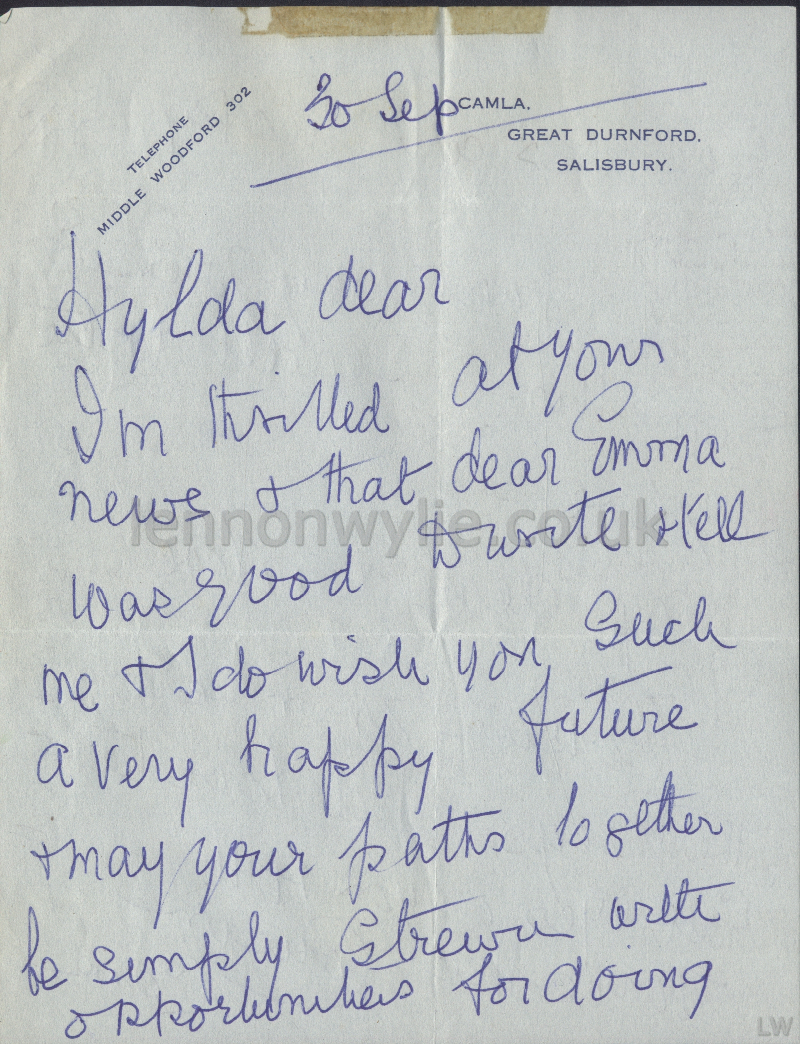 TELEPHONE
MIDDLE WOODFORD 302
30 Sep
CAMLA,
GREAT DURNFORD,
SALISBURY.
Hylda dear
I'm thrilled at your
news & that dear Emma
was good to write & tell
me & I do wish you such
a very happy future
& may your paths together
be simply strewn with
opportunities for doing
lennonwylie.co.uk
LW